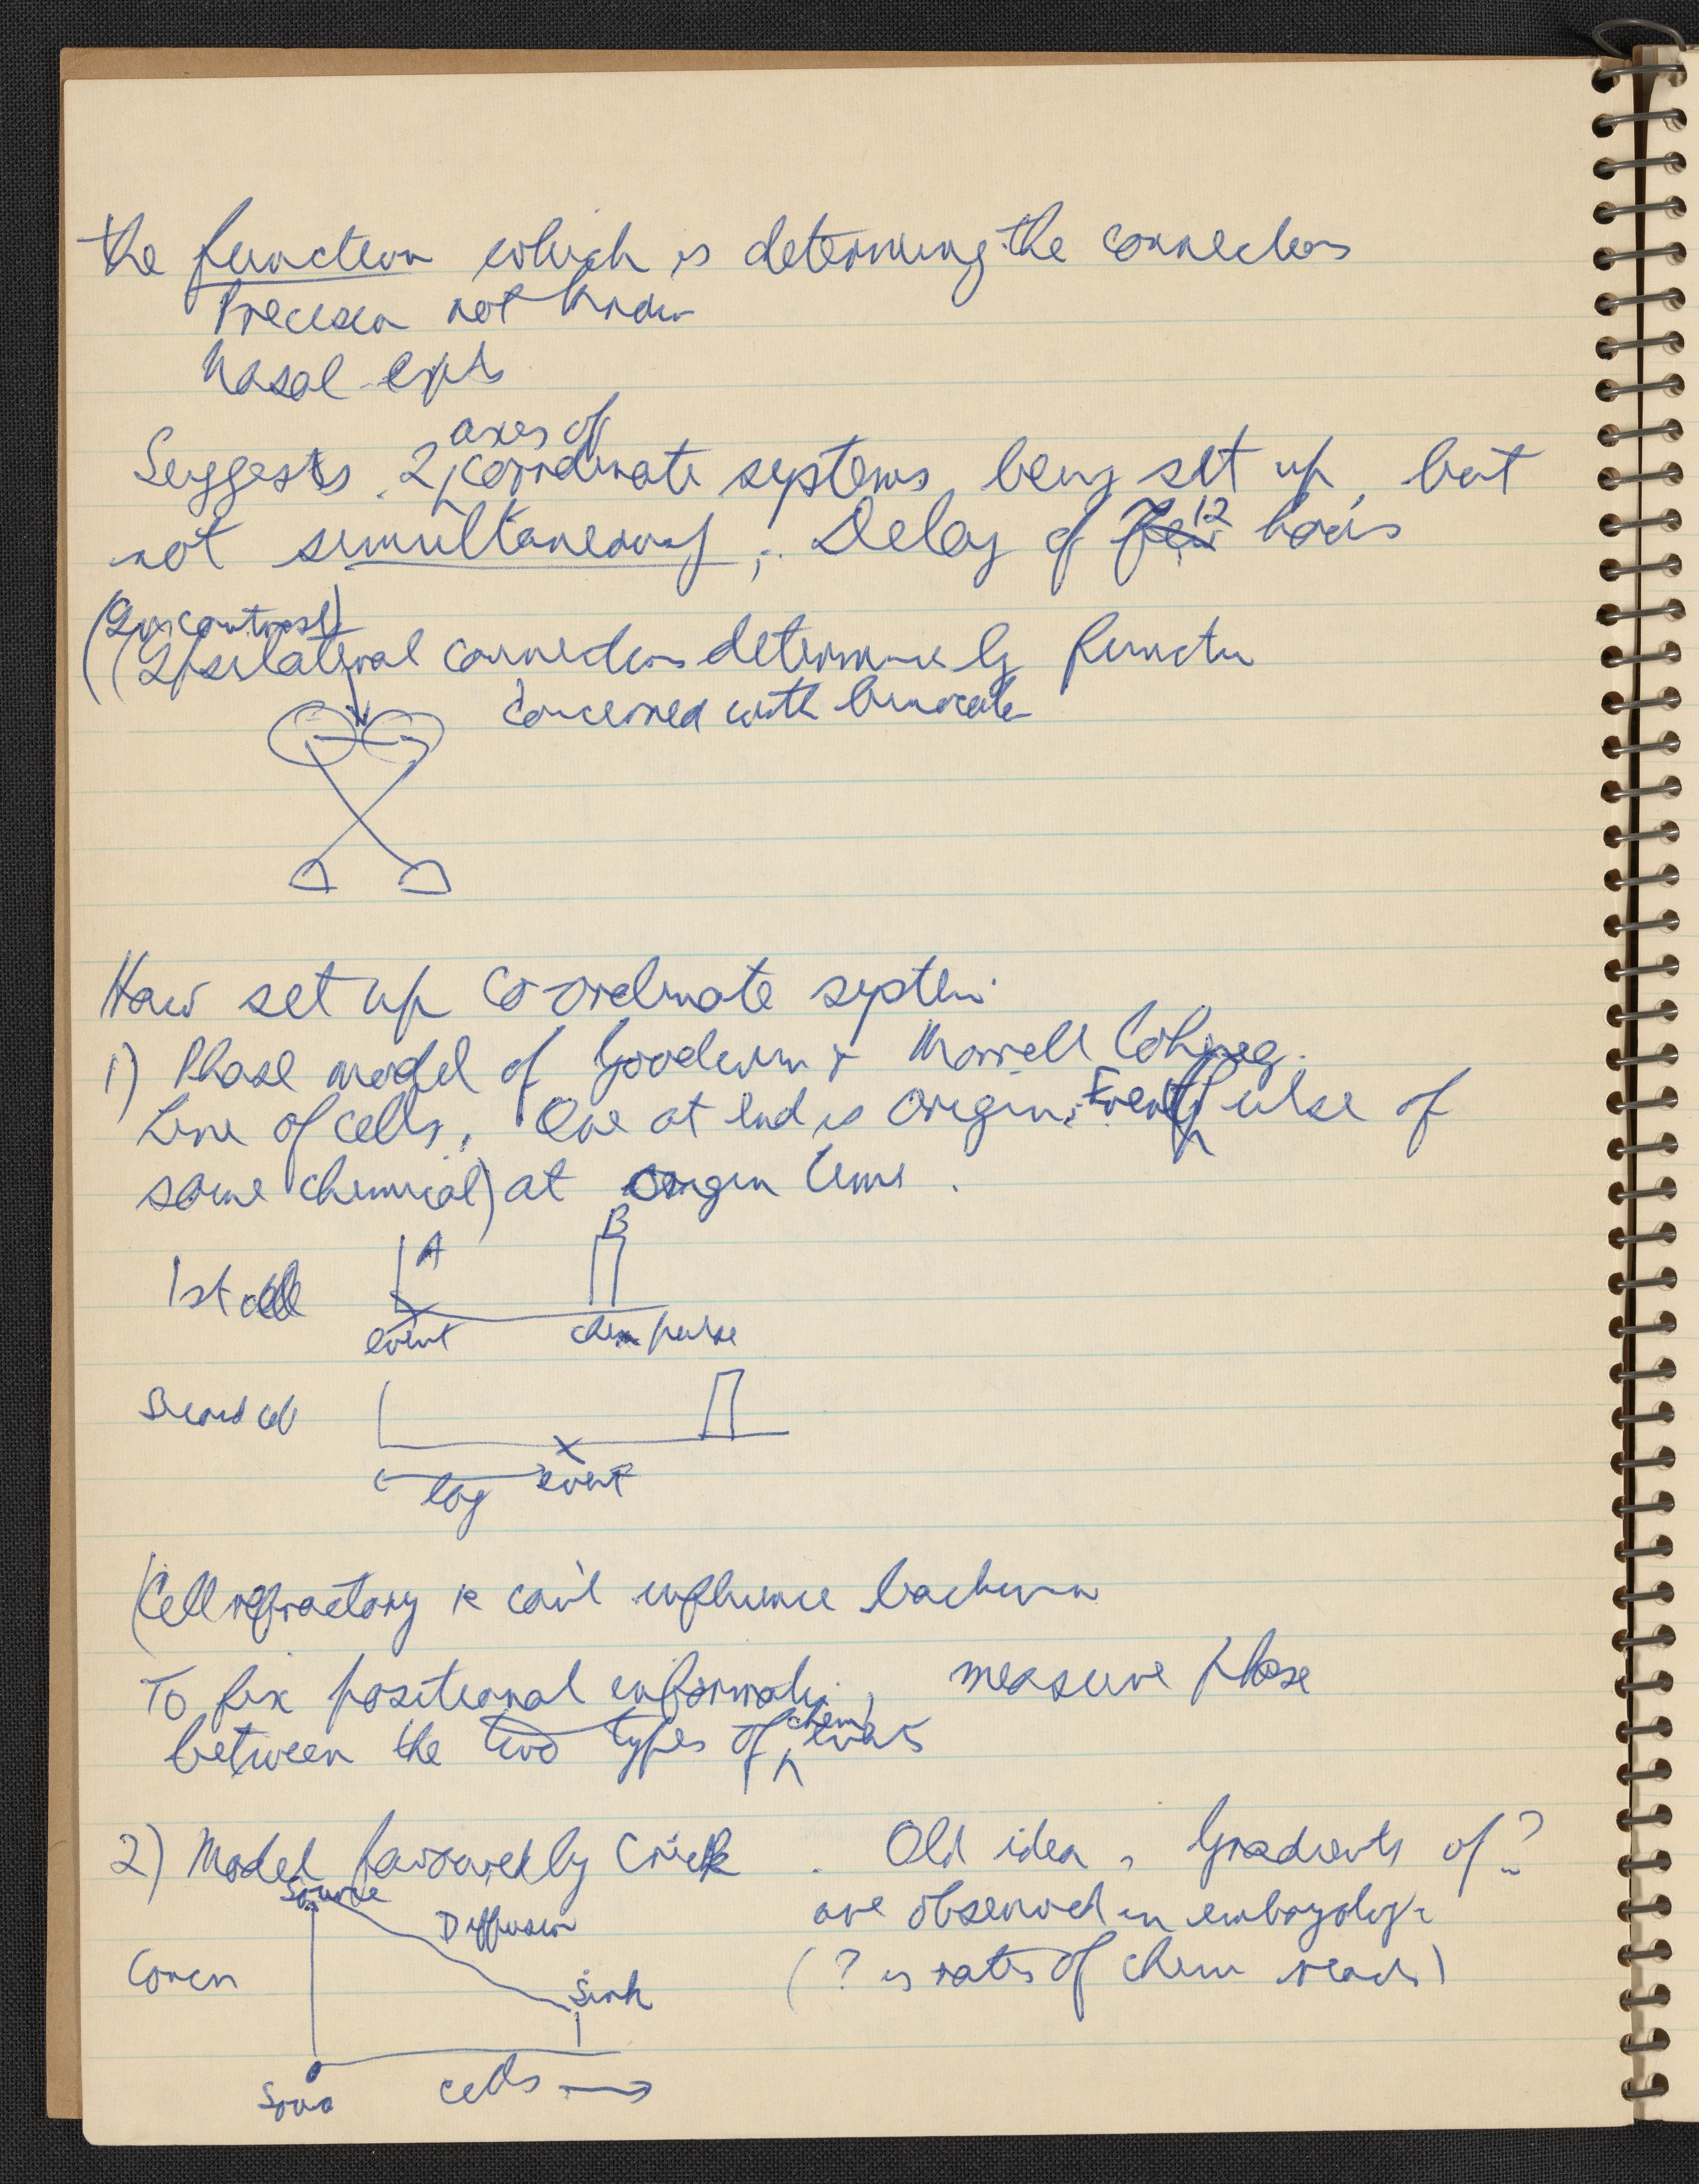 the function which is determining the connections
Precision not known
Nasal expts
Suggests 2 axes of coordinate systems being set up, but
not simultaneously; Delay of 12 hours
(In contrast)
((Ipsilateral connections determined by function
concerned with binocular
How set up co-ordinate system.
1) Phase model of Goodwin & Morrell Cohen
Line of cells. One at end is origin. Event (pulse of
some chemical) at origin time.
A B
1st cell
event chem pulse
Second cell
lag event
(Cell refractory & can't influence backwards
To fix positional information, measure phase
between the two types of chem events
2) Model favoured by Crick. Old idea, Gradients of ?
Source are observed in embryology
Diffusion
Concn (? is rates of chem reacts)
Sink
cells →